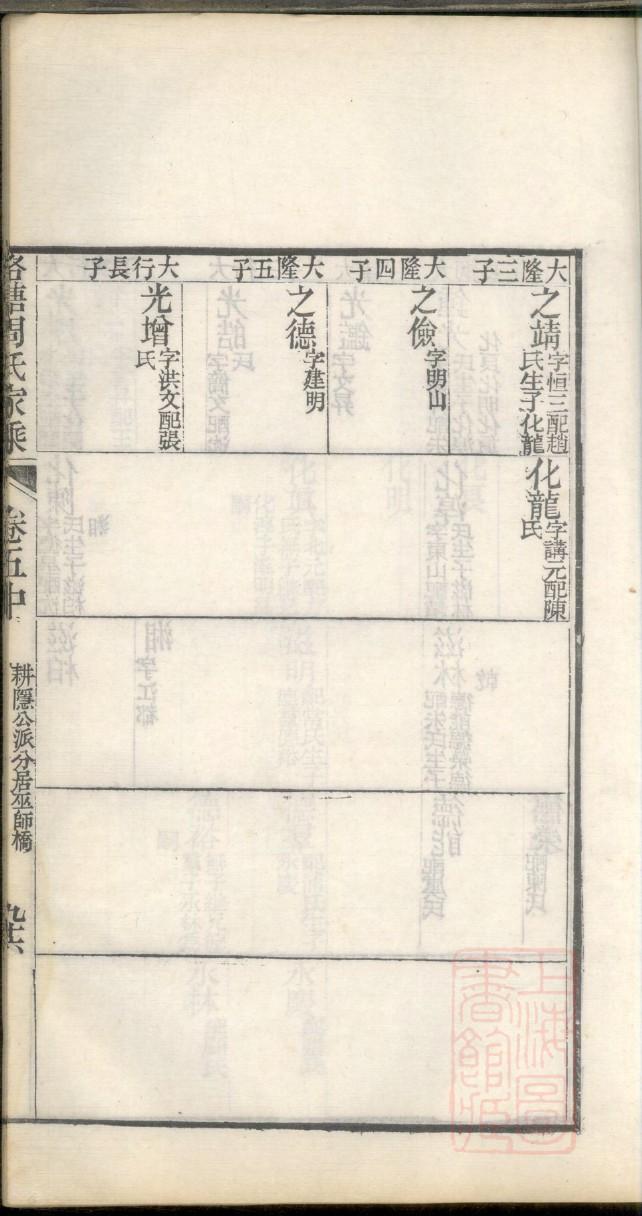 大隆三子
之靖字恒三配趙
氏生子化龍
化龍字講元配陳
氏
大隆四子
之儉字明山
大隆五子
之德字建明
大行長子
光增字洪文配張
氏
塘周氏家乘
卷五中
耕隱公派分居巫師橋
九六
上海圖
書館藏